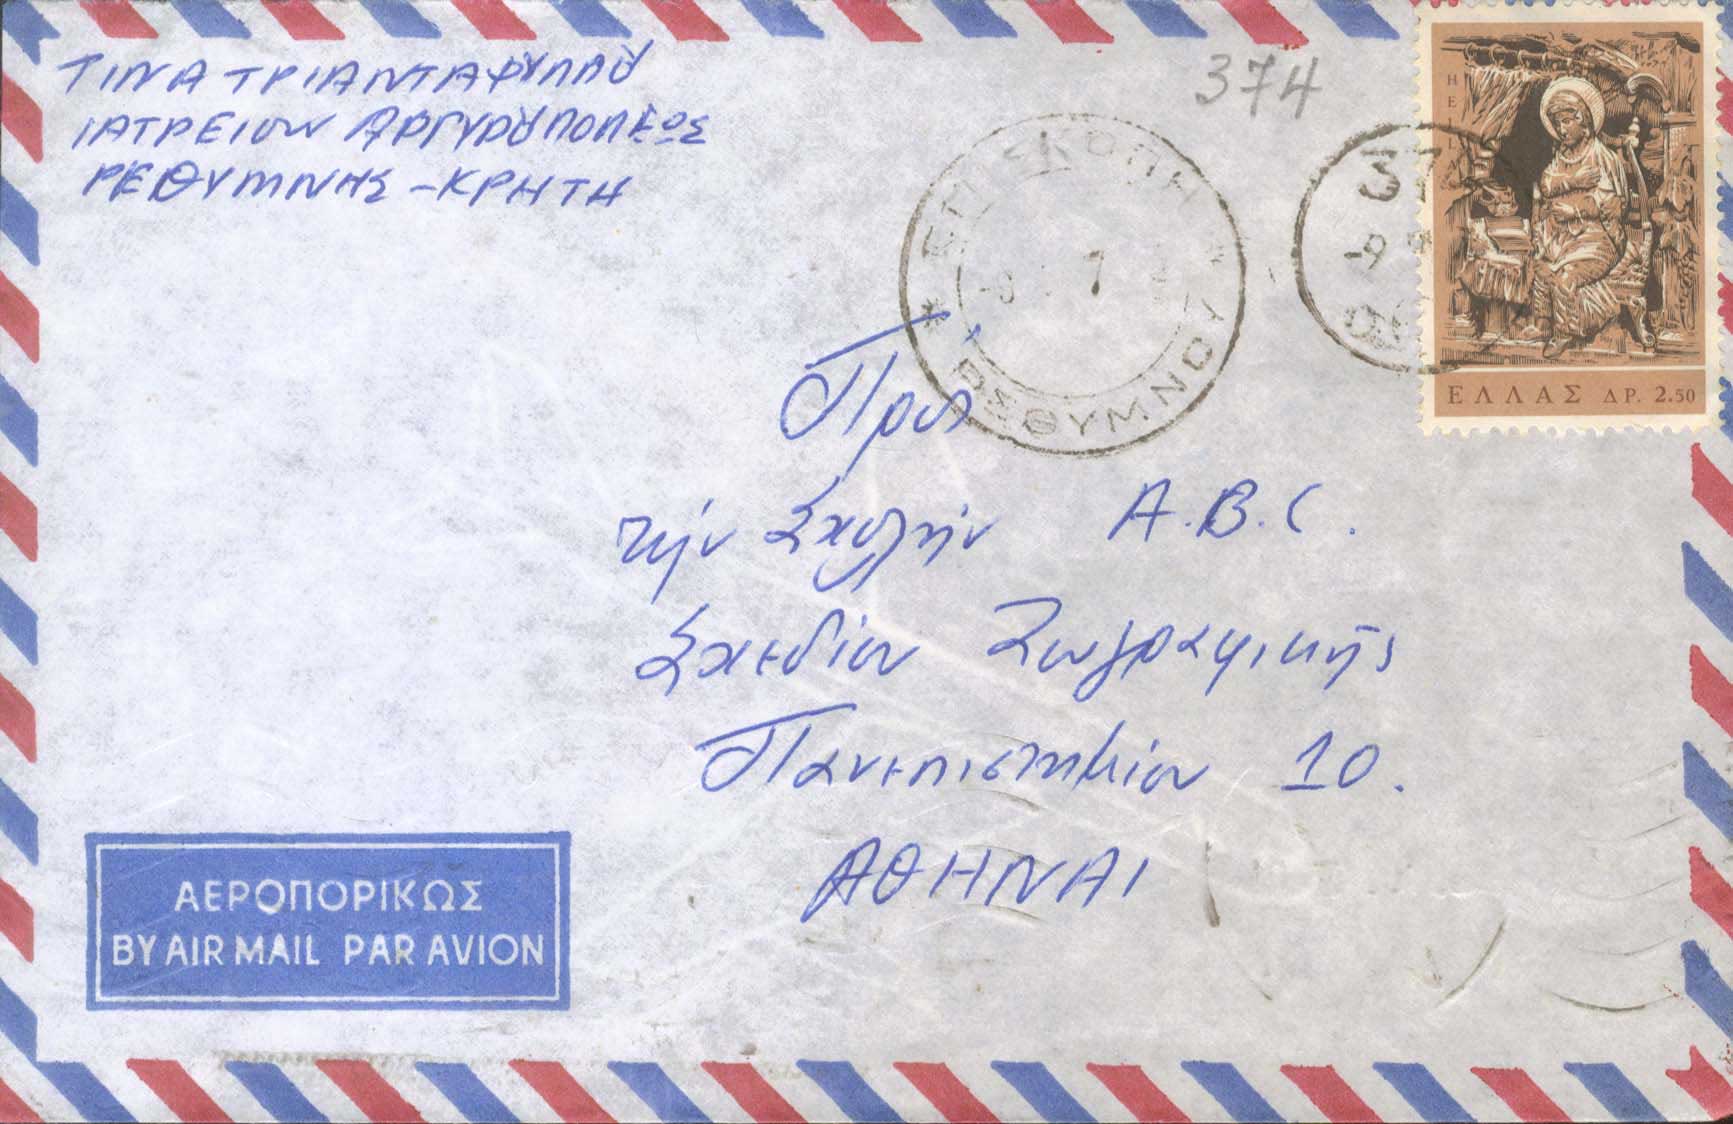 ΤΙΝΑ ΤΡΙΑΝΤΑΦΥΛΛΟΥ
ΙΑΤΡΕΙΟΝ ΑΡΓΥΡΟΥΠΟΛΕΩΣ
ΡΕΘΥΜΝΗΣ - ΚΡΗΤΗ
374
ΕΠΙΣΚΟΠΗ
7
ΡΕΘΥΜΝΟΥ
37
ΕΛΛΑΣ ΔΡ. 2.50
Πρός
τήν Σχολήν A.B.C.
Σχεδίου Ζωγραφικῆς
Πανεπιστημίου 10.
ΑΘΗΝΑΙ
ΑΕΡΟΠΟΡΙΚΩΣ
BY AIR MAIL PAR AVION